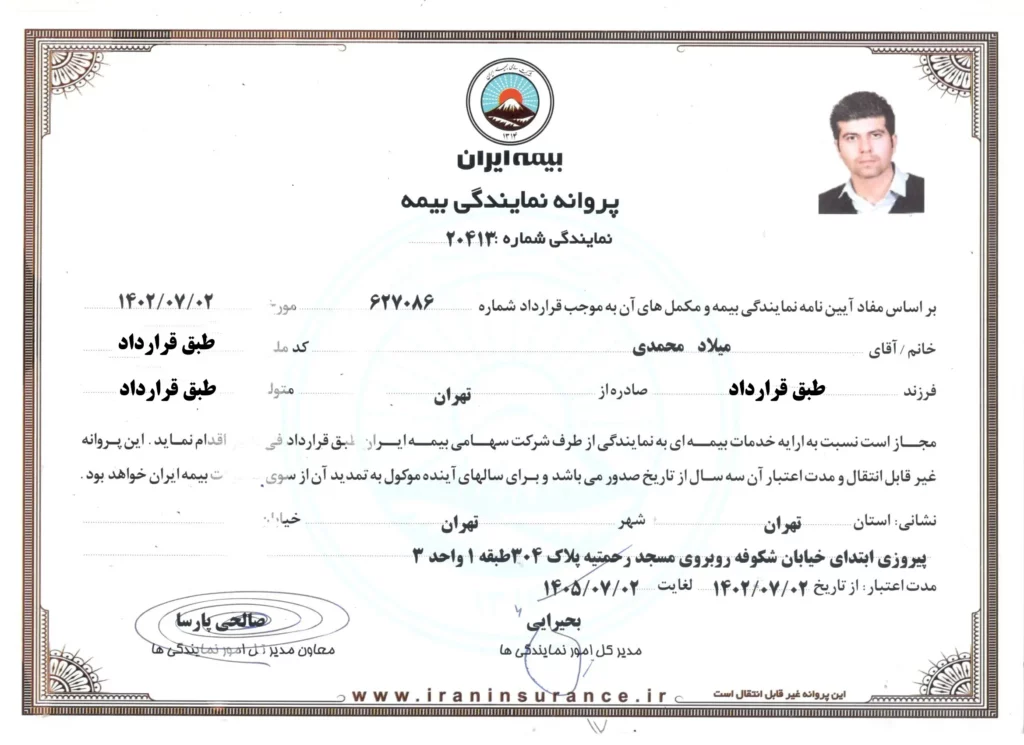 ۱۳۱۴
بیمه ایران
پروانه نمایندگی بیمه
نمایندگی شماره :۲۰۴۱۳
بر اساس مفاد آیین نامه نمایندگی بیمه و مکمل های آن به موجب قرارداد شماره ۶۲۷۰۸۶ مورخ ۱۴۰۲/۰۷/۰۲
خانم / آقای میلاد محمدی کد ملی طبق قرارداد
فرزند طبق قرارداد صادره از تهران متولد طبق قرارداد
مجاز است نسبت به ارایه خدمات بیمه ای به نمایندگی از طرف شرکت سهامی بیمه ایران طبق قرارداد اقدام نماید. این پروانه
غیر قابل انتقال و مدت اعتبار آن سه سال از تاریخ صدور می باشد و برای سالهای آینده موکول به تمدید آن از سوی بیمه ایران خواهد بود.
نشانی: استان تهران شهر تهران خیابان
پیروزی ابتدای خیابان شکوفه روبروی مسجد رحمتیه پلاک ۳۰۴طبقه ۱ واحد ۳
مدت اعتبار: از تاریخ ۱۴۰۲/۰۷/۰۲ لغایت ۱۴۰۵/۰۷/۰۲
بحیرایی
مدیر کل امور نمایندگی ها
صالحی پارسا
معاون مدیر کل امور نمایندگی ها
این پروانه غیر قابل انتقال است
www.iraninsurance.ir